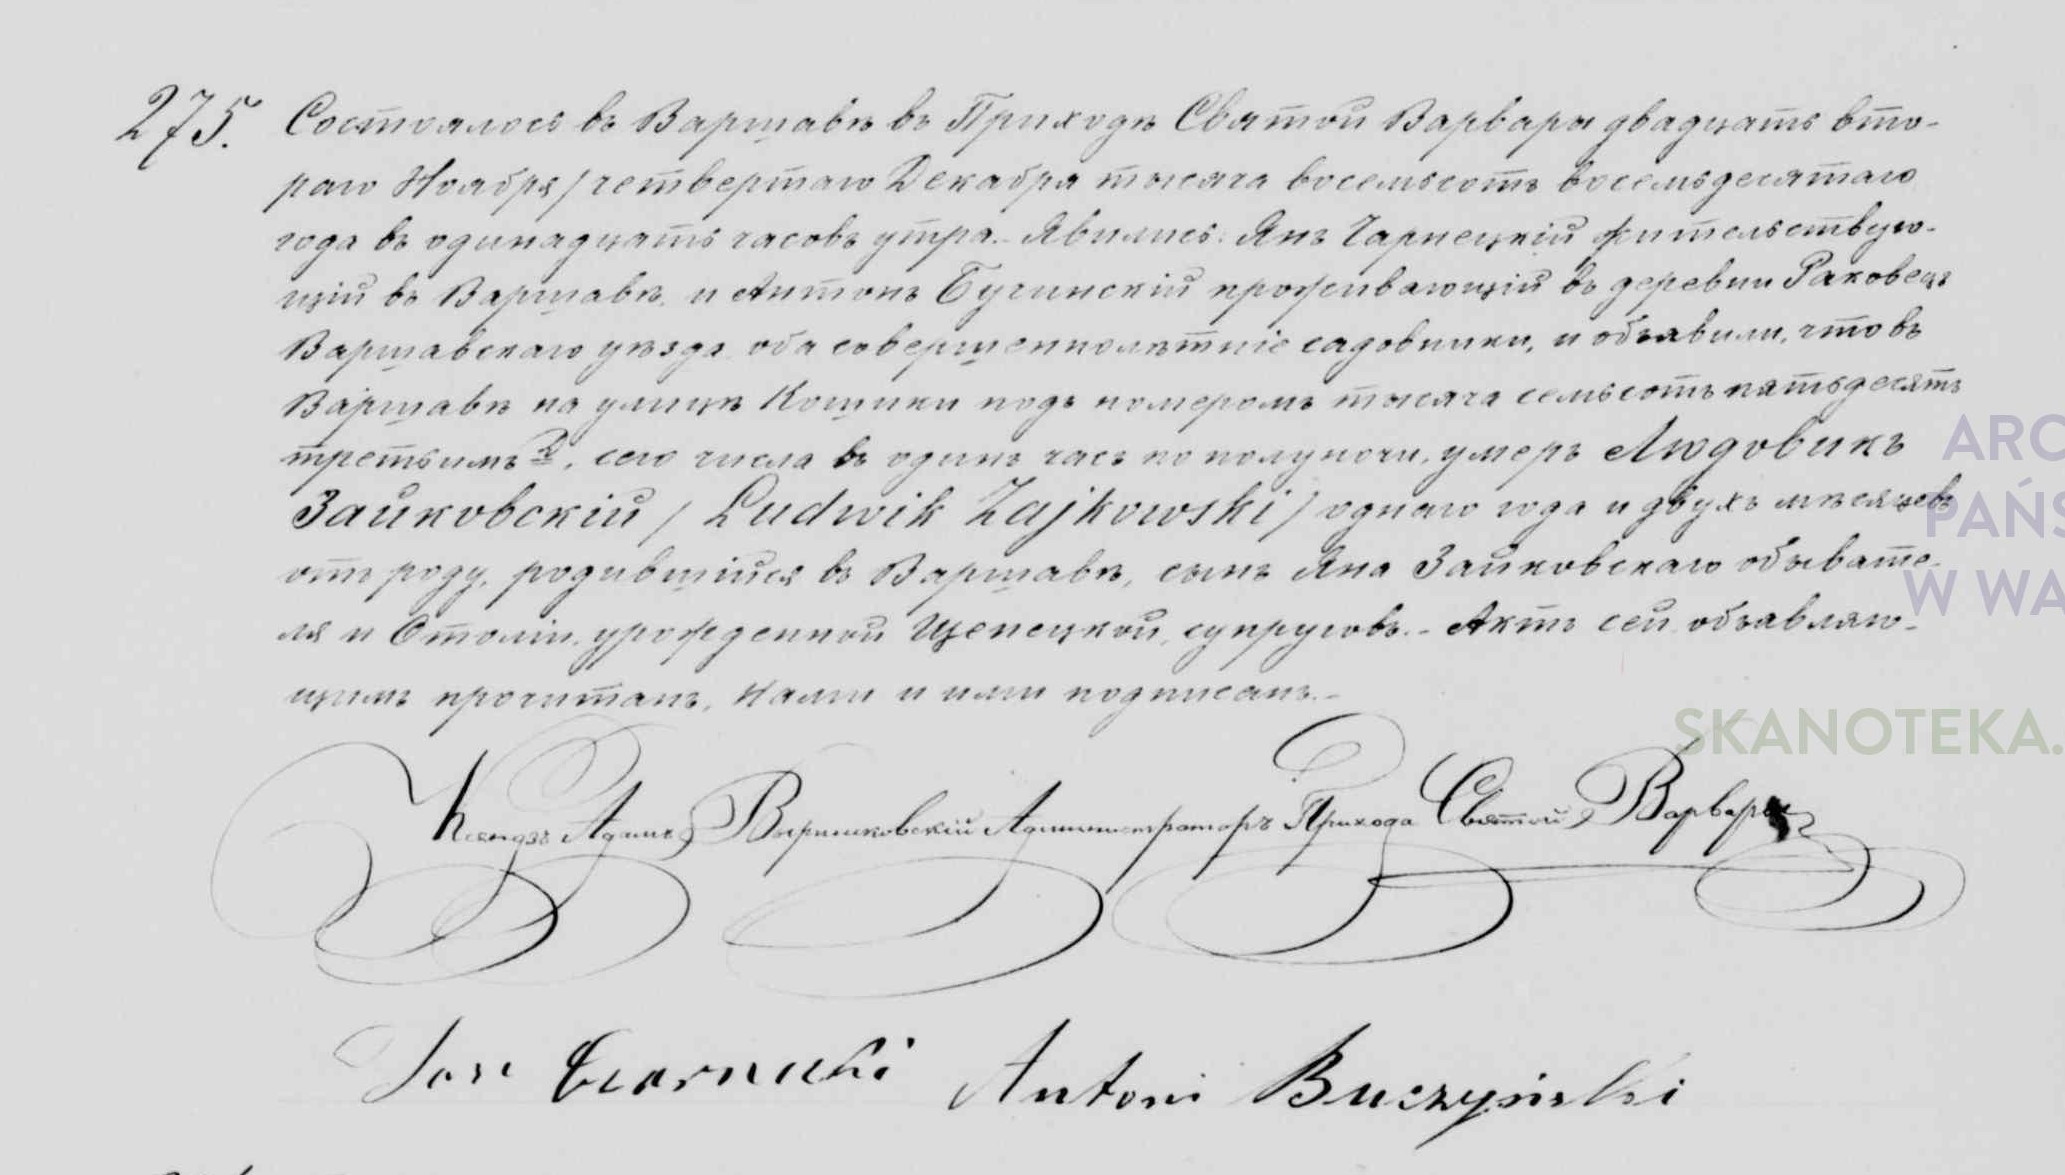 275. Состоялось въ Варшавѣ въ Приходѣ Святой Варвары двадцать вто-
раго Ноября / четвертаго Декабря тысяча восемьсотъ восемьдесятаго
года въ одинадцать часовъ утра. – Явились: Янъ Чарнецкій жительствую-
щій въ Варшавѣ и Антонъ Бучинскій проживающій въ деревни Раковецъ
Варшавскаго уѣзда оба совершеннолѣтніе садовники, и объявили, что въ
Варшавѣ на улицѣ Кошики подъ номеромъ тысяча семьсотъ пятьдесятъ
третьимъ, сего числа въ одинъ часъ по полуночи, умеръ Людовикъ
Зайковскій / Ludwik Zajkowski / одного года и двухъ мѣсяцевъ
отъ роду, родившійся въ Варшавѣ, сынъ Яна Зайковскаго обывате-
ля и Отоліи, урожденной Щепецкой, супруговъ. – Актъ сей объявляю-
щимъ прочитанъ, Нами и ими подписанъ. –
Ксендзъ Адамъ Администраторъ Прихода Святой Варвары
Jan Czarnecki Antoni Buczyński
ARC
PAŃS
W WA
SKANOTEKA.